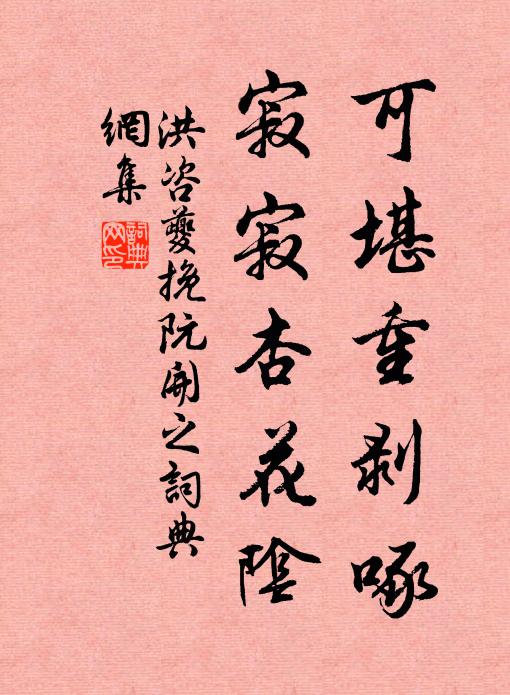 可堪重剥啄
寂寂杏花陰
洪咨夔挽阮開之詞典
網集
詞典
网印